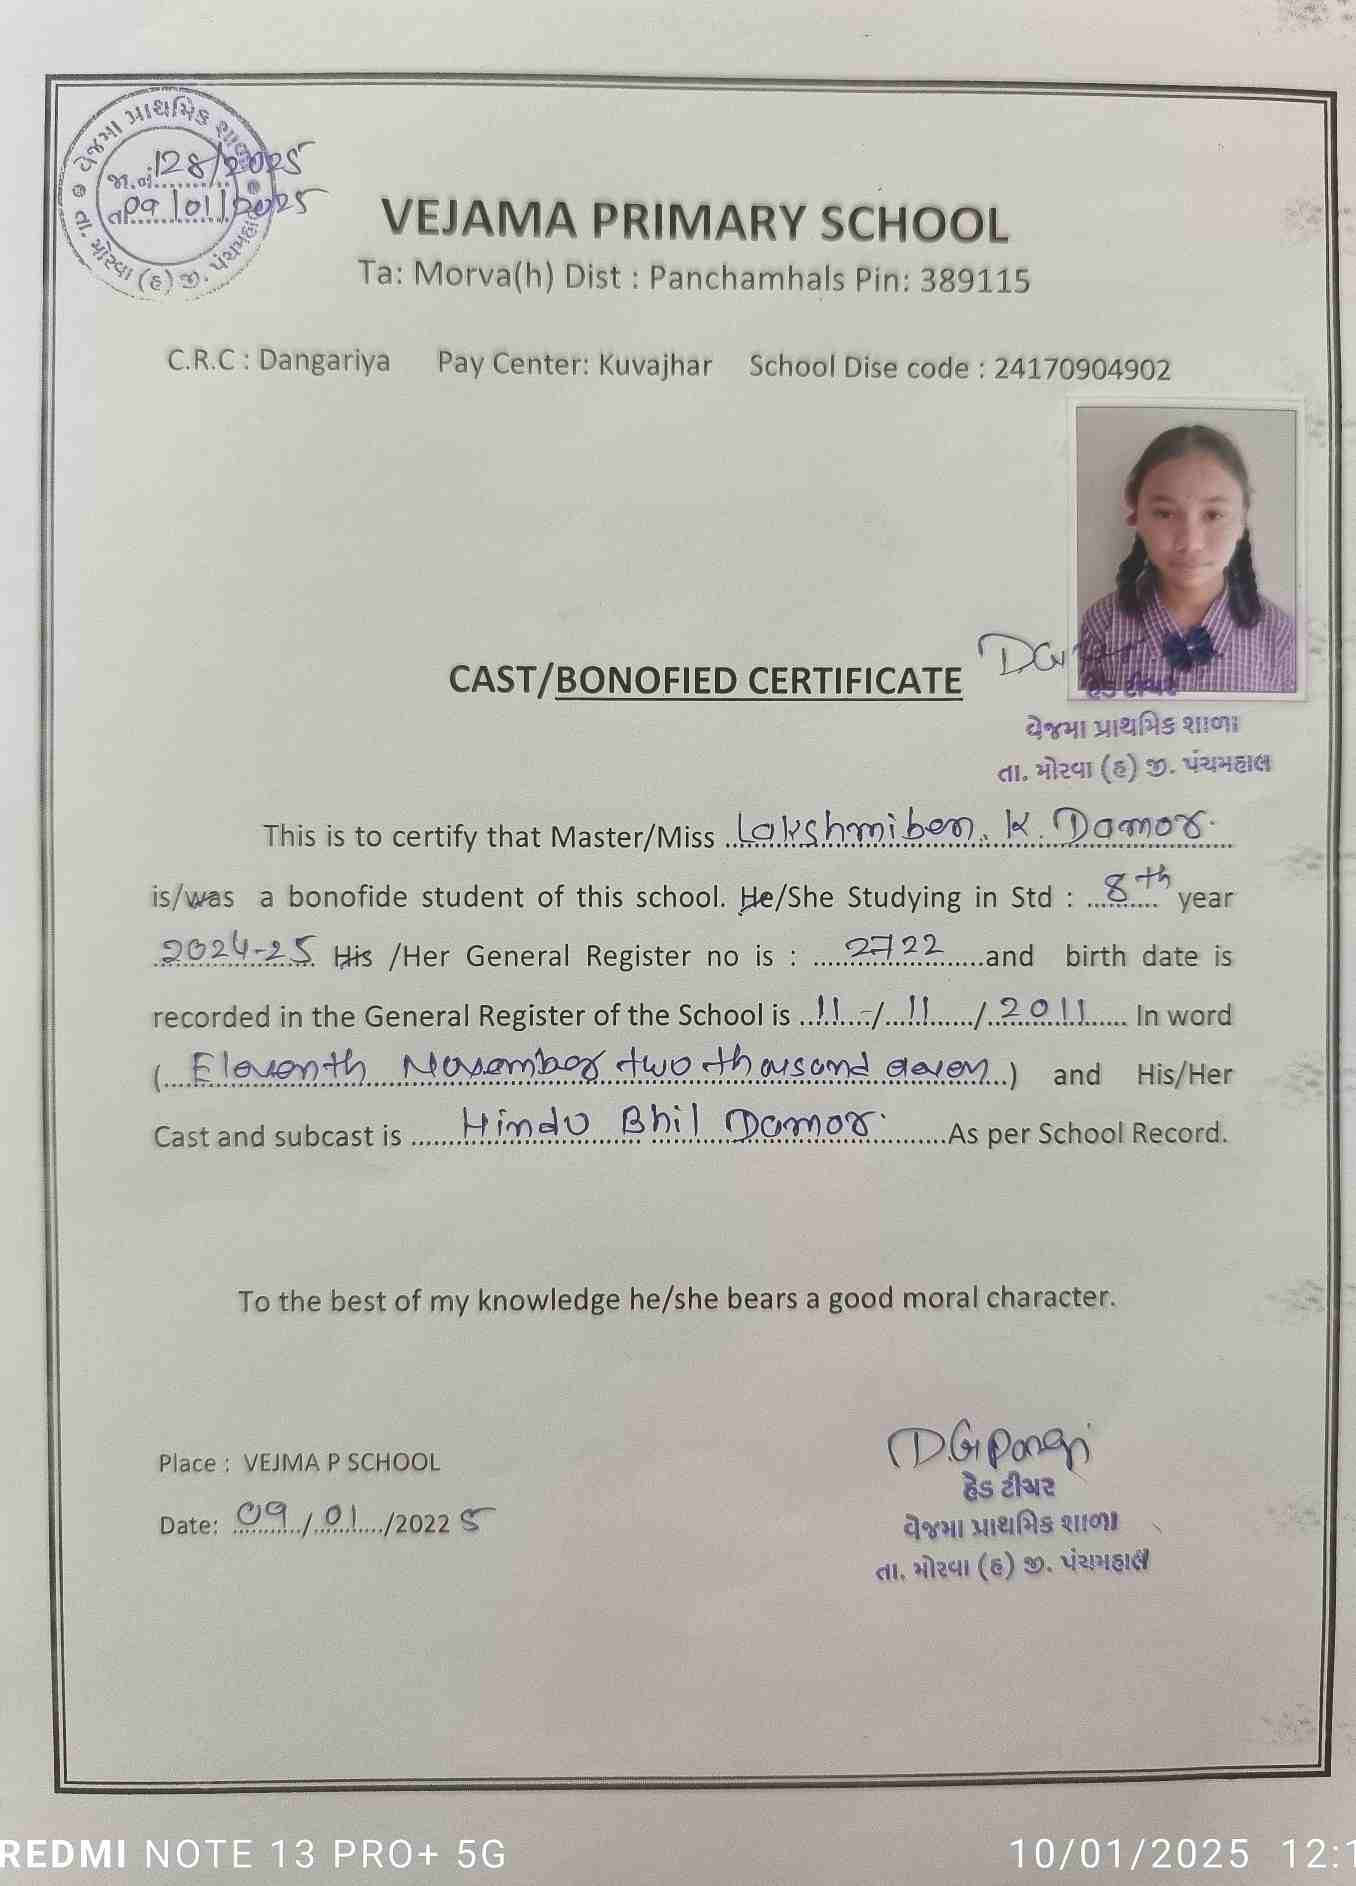 વેજમા પ્રાથમિક શાળા
જા.નં. 128/2025
તા. 09/01/2025
તા. મોરવા (હ) જી. પંચમહાલ
VEJAMA PRIMARY SCHOOL
Ta: Morva(h) Dist : Panchamhals Pin: 389115
C.R.C : Dangariya Pay Center: Kuvajhar School Dise code : 24170904902
CAST/BONOFIED CERTIFICATE
હેડ ટીચર
વેજમા પ્રાથમિક શાળા
તા. મોરવા (હ) જી. પંચમહાલ
This is to certify that Master/Miss Lakshmiben. K. Damor.
is/was a bonofide student of this school. He/She Studying in Std : 8th year
2024-25 His /Her General Register no is : 2722 and birth date is
recorded in the General Register of the School is 11/11/2011 In word
( Eleventh November two thousand eleven ) and His/Her
Cast and subcast is Hindu Bhil Damor. As per School Record.
To the best of my knowledge he/she bears a good moral character.
Place : VEJMA P SCHOOL
Date: 09/01/2022 5
હેડ ટીચર
વેજમા પ્રાથમિક શાળા
તા. મોરવા (હ) જી. પંચમહાલ
REDMI NOTE 13 PRO+ 5G
10/01/2025 12:1